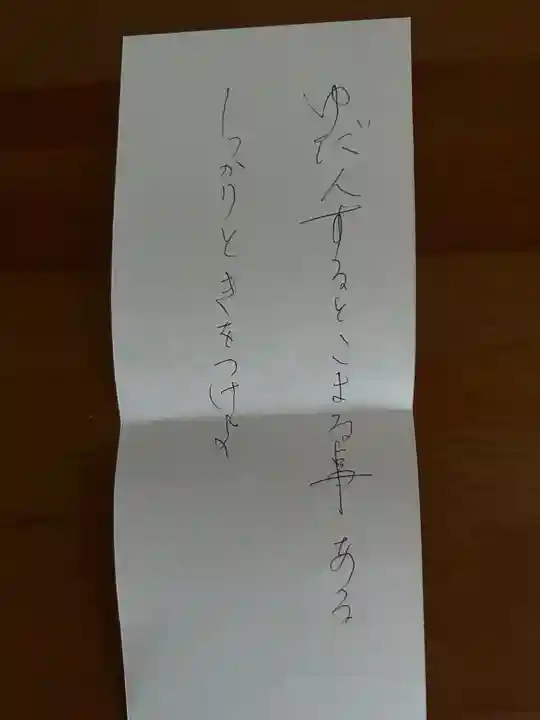 ゆだんするとこまる事ある
しっかりときをつけて